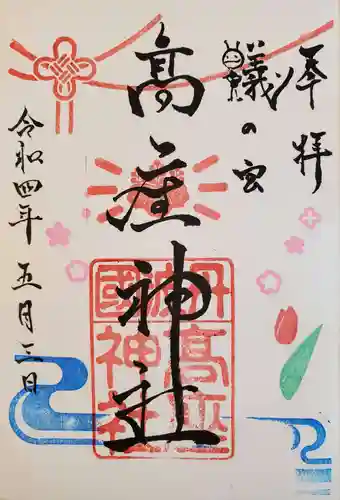 奉拝
蟻の宮
髙座神社
令和四年五月三日
丹波國
高座
神社